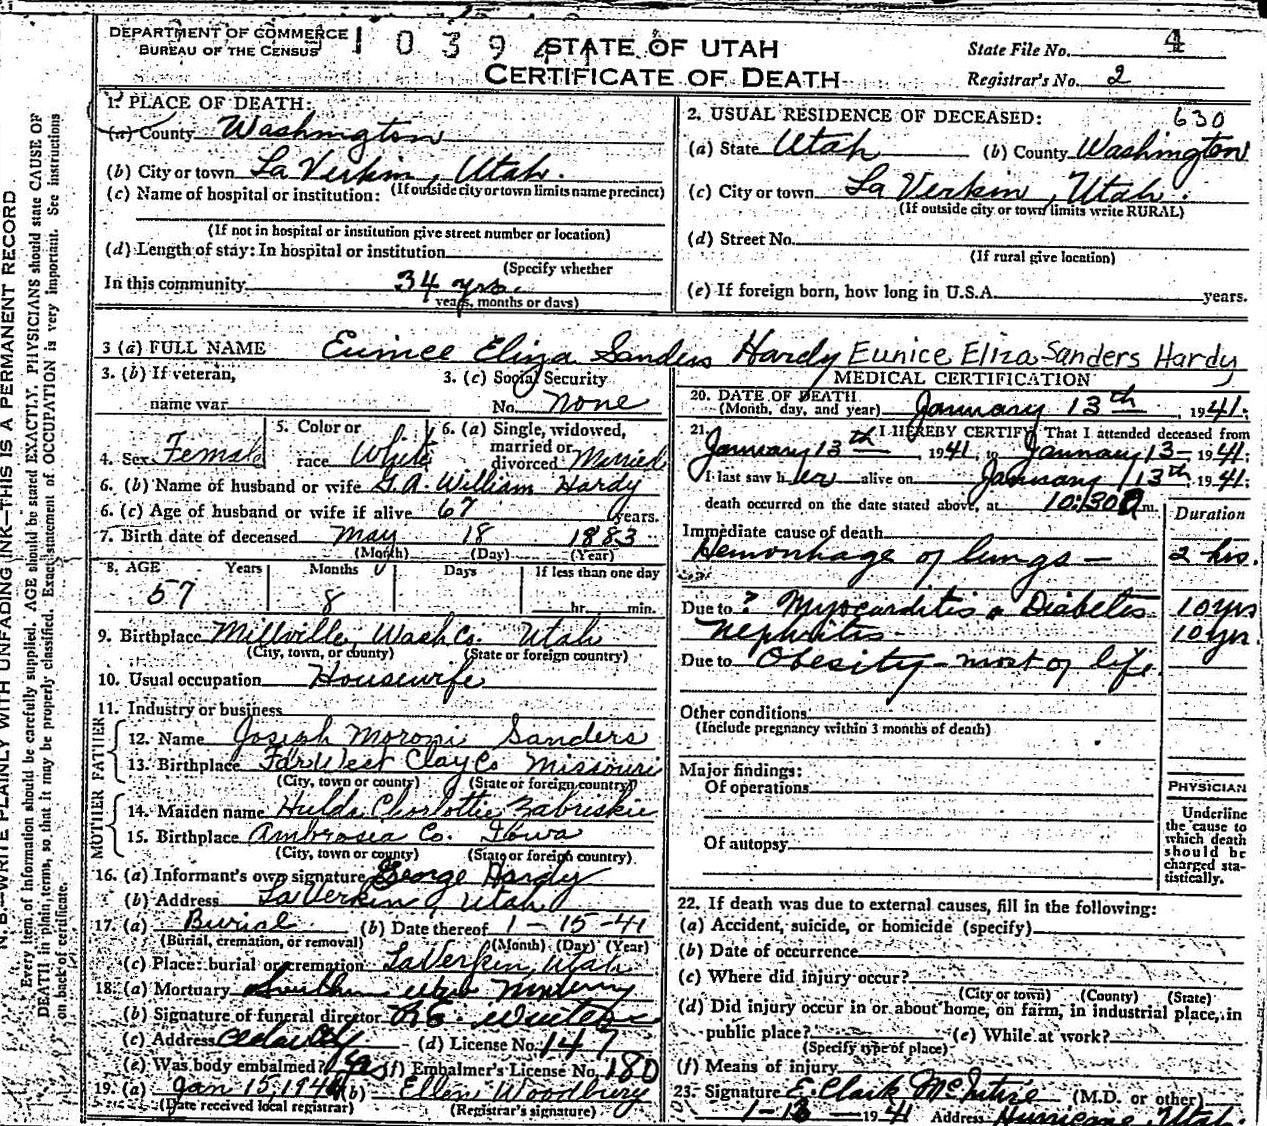 DEPARTMENT OF COMMERCE
BUREAU OF THE CENSUS
1 0 3 9 4
STATE OF UTAH
CERTIFICATE OF DEATH
State File No. 4
Registrar's No. 2
1. PLACE OF DEATH:
(a) County Washington
(b) City or town La Verkin, Utah.
(If outside city or town limits name precinct)
(c) Name of hospital or institution:
(If not in hospital or institution give street number or location)
(d) Length of stay: In hospital or institution
(Specify whether
In this community 34 yrs.
years, months or days)
2. USUAL RESIDENCE OF DECEASED: 630
(a) State Utah (b) County Washington
(c) City or town La Verkin, Utah.
(If outside city or town limits write RURAL)
(d) Street No.
(If rural give location)
(e) If foreign born, how long in U.S.A. years.
3 (a) FULL NAME Eunice Eliza Sanders Hardy Eunice Eliza Sanders Hardy
3. (b) If veteran,
name war
3. (c) Social Security
No. None
4. Sex Female
5. Color or
race White
6. (a) Single, widowed,
married or
divorced Married
6. (b) Name of husband or wife G.A. William Hardy
6. (c) Age of husband or wife if alive 67 years.
7. Birth date of deceased May 18 1883
(Month) (Day) (Year)
8. AGE Years Months Days If less than one day
57 8 hr. min.
9. Birthplace Millville, Wash Co. Utah
(City, town, or county) (State or foreign country)
10. Usual occupation Housewife
11. Industry or business
FATHER
12. Name Josiah Moroni Sanders
13. Birthplace Far West Clay Co Missouri
(City, town or county) (State or foreign country)
MOTHER
14. Maiden name Hulda Charlottie Zabriskie
15. Birthplace Ambrosea Co. Iowa
(City, town or county) (State or foreign country)
16. (a) Informant's own signature George Hardy
(b) Address La Verkin, Utah
17. (a) Burial (b) Date thereof 1-15-41
(Burial, cremation, or removal) (Month) (Day) (Year)
(c) Place: burial or cremation La Verkin, Utah
18. (a) Mortuary
(b) Signature of funeral director
(c) Address Cedar City (d) License No. 147
(e) Was body embalmed? Yes (f) Embalmer's License No. 180
19. (a) Jan 15, 1941 (b) Ellen Woodbury
(Date received local registrar) (Registrar's signature)
MEDICAL CERTIFICATION
20. DATE OF DEATH
(Month, day, and year) January 13th, 1941.
21. I HEREBY CERTIFY, That I attended deceased from
January 13th, 1941, to January 13-, 1941;
I last saw her alive on January 13th, 1941;
death occurred on the date stated above, at 10:30 m.
Duration
Immediate cause of death
Hemorrhage of lungs — 2 hrs.
Due to ? Myocarditis & Diabetes 10 yrs
Nephritis 10 yr.
Due to Obesity - most of life.
Other conditions
(Include pregnancy within 3 months of death)
Major findings:
Of operations
Of autopsy
PHYSICIAN
Underline
the cause to
which death
should be
charged sta-
tistically.
22. If death was due to external causes, fill in the following:
(a) Accident, suicide, or homicide (specify)
(b) Date of occurrence
(c) Where did injury occur?
(City or town) (County) (State)
(d) Did injury occur in or about home, on farm, in industrial place, in
public place? (e) While at work?
(Specify type of place)
(f) Means of injury
23. Signature E. Clark McIntire (M.D. or other)
1-13 1941 Address Hurricane, Utah.
N. B.—WRITE PLAINLY WITH UNFADING INK—THIS IS A PERMANENT RECORD
Every item of information should be carefully supplied. AGE should be stated EXACTLY. PHYSICIANS should state CAUSE OF
DEATH in plain terms, so that it may be properly classified. Exact statement of OCCUPATION is very important. See instructions
on back of certificate.